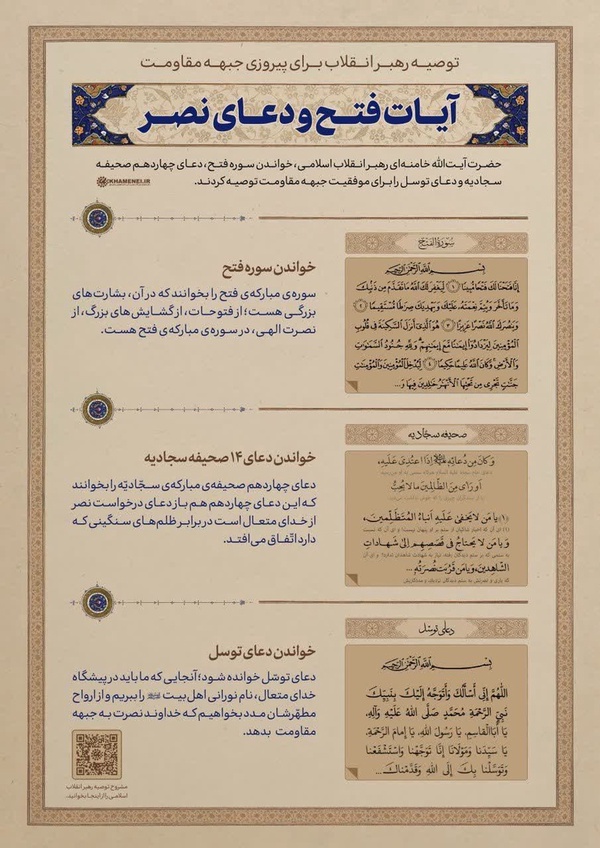 توصیه رهبر انقلاب برای پیروزی جبهه مقاومت
آیات فتح و دعای نصر
حضرت آیت‌الله خامنه‌ای رهبر انقلاب اسلامی، خواندن سوره فتح، دعای چهاردهم صحیفه
سجادیه و دعای توسل را برای موفقیت جبهه مقاومت توصیه کردند.
KHAMENEI.IR
سورة الفتح
بسم الله الرحمن الرحیم
إِنَّا فَتَحْنَا لَكَ فَتْحًا مُّبِينًا ﴿١﴾ لِّيَغْفِرَ لَكَ اللَّهُ مَا تَقَدَّمَ مِن ذَنبِكَ
وَمَا تَأَخَّرَ وَيُتِمَّ نِعْمَتَهُ عَلَيْكَ وَيَهْدِيَكَ صِرَاطًا مُّسْتَقِيمًا ﴿٢﴾
وَيَنصُرَكَ اللَّهُ نَصْرًا عَزِيزًا ﴿٣﴾ هُوَ الَّذِي أَنزَلَ السَّكِينَةَ فِي قُلُوبِ
الْمُؤْمِنِينَ لِيَزْدَادُوا إِيمَانًا مَّعَ إِيمَانِهِمْ وَلِلَّهِ جُنُودُ السَّمَاوَاتِ
وَالْأَرْضِ وَكَانَ اللَّهُ عَلِيمًا حَكِيمًا ﴿٤﴾ لِّيُدْخِلَ الْمُؤْمِنِينَ وَالْمُؤْمِنَاتِ
جَنَّاتٍ تَجْرِي مِن تَحْتِهَا الْأَنْهَارُ خَالِدِينَ فِيهَا وَ...
خواندن سوره فتح
سوره‌ی مبارکه‌ی فتح را بخوانند که در آن، بشارت‌های
بزرگی هست؛ از فتوحات، از گشایش های بزرگ، از
نصرت الهی، در سوره‌ی مبارکه‌ی فتح هست.
صحیفه سجادیه
وَ كَانَ مِن دُعَائِهِ إِذَا اعْتُدِيَ عَلَيْهِ،
أَوْ رَأَى مِنَ الظَّالِمِينَ مَا لَا يُحِبُّ
(۱) يَا مَن لَا يَخْفَى عَلَيْهِ أَنْبَاءُ الْمُتَظَلِّمِينَ،
وَيَا مَن لَا يَحْتَاجُ فِي قَصَصِهِم إِلَى شَهَادَاتِ
الشَّاهِدِينَ، وَيَا مَن قَرُبَت نُصْرَتُهُ...
خواندن دعای ۱۴ صحیفه سجادیه
دعای چهاردهم صحیفه‌ی مبارکه‌ی سجّادیّه را بخوانند
که این دعای چهاردهم هم باز دعای درخواست نصر
از خدای متعال است در برابر ظلم‌های سنگینی که
دارد اتّفاق می‌افتد.
دعای توسل
بسم الله الرحمن الرحیم
اللَّهُمَّ إِنِّي أَسْأَلُكَ وَأَتَوَجَّهُ إِلَيْكَ بِنَبِيِّكَ
نَبِيِّ الرَّحْمَةِ مُحَمَّدٍ صَلَّى اللَّهُ عَلَيْهِ وَآلِهِ،
يَا أَبَا الْقَاسِمِ، يَا رَسُولَ اللَّهِ، يَا إِمَامَ الرَّحْمَةِ،
يَا سَيِّدَنَا وَمَوْلَانَا إِنَّا تَوَجَّهْنَا وَاسْتَشْفَعْنَا
وَتَوَسَّلْنَا بِكَ إِلَى اللَّهِ وَقَدَّمْنَاكَ...
خواندن دعای توسل
دعای توسّل خوانده شود؛ آنجایی که ما باید در پیشگاه
خدای متعال، نام نورانی اهل بیت را ببریم و از ارواح
مطهّرشان مدد بخواهیم که خداوند نصرت به جبهه
مقاومت بدهد.
مشروح توصیه رهبر انقلاب
اسلامی را از اینجا بخوانید.